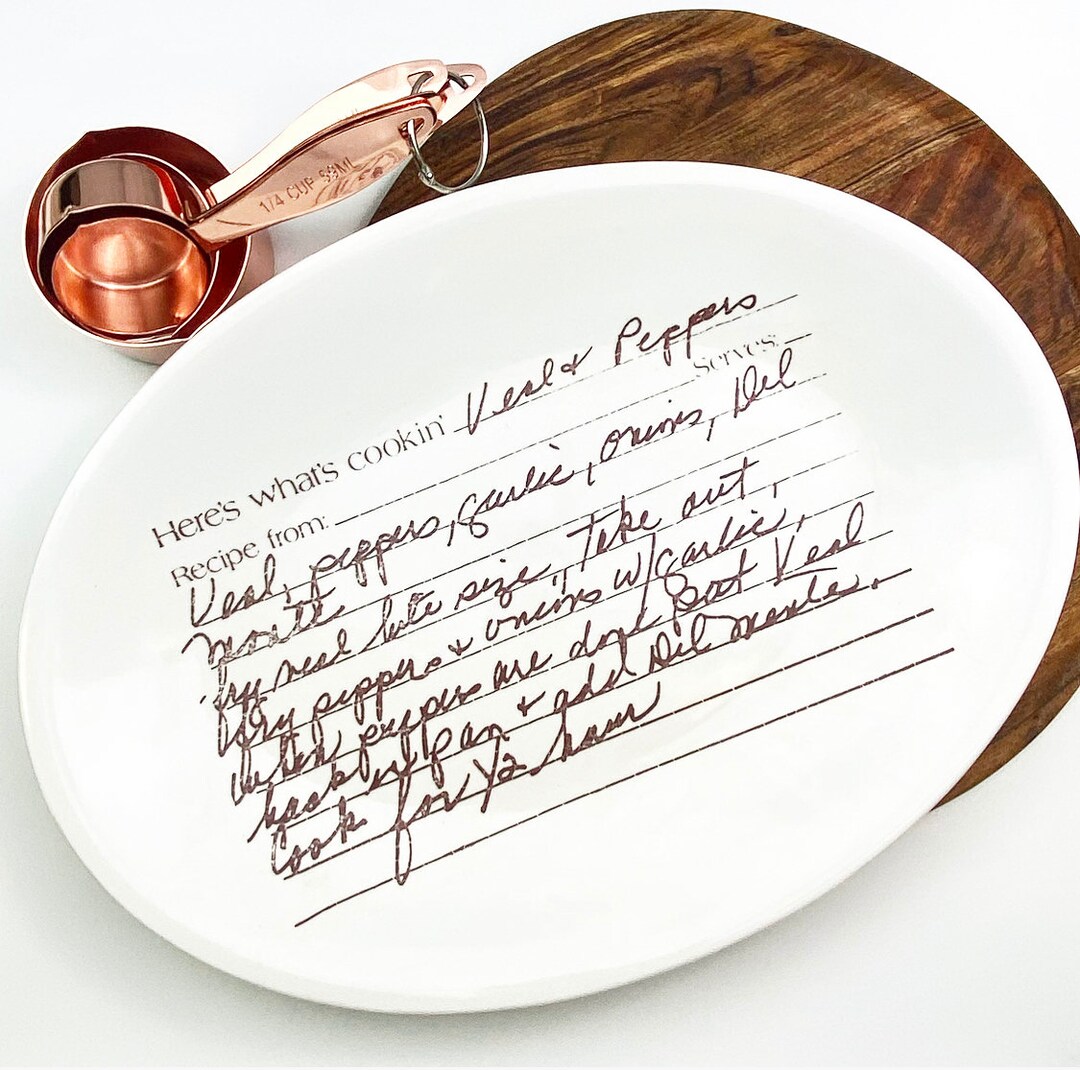 1/4 CUP 59ML
Here's what's cookin' Veal & Peppers
Recipe from: Serves:
Veal, peppers, garlic, onions, Del
Monte
fry veal bite size, Take out,
fry peppers & onions w/garlic,
when peppers are done put Veal
back in pan & add Del Monte.
Cook for 1/2 hour